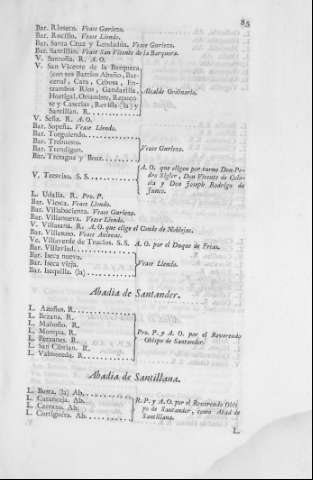 85
Bar. Rioseco. Vease Guriezo.
Bar. Rucillo. Vease Liendo.
Bar. Santa Cruz y Lendadiis. Vease Guriezo.
Bar. Santillan. Vease San Vicente de la Barquera.
V. Santoña. R. A. O.
V. San Vicente de la Barquera
(con sus Barrios Abaño, Bar-
cenal, Cara, Cobosa, En-
trambos Rios, Gandarilla,
Hortigal, Oriambre,
y Caserias, Revilla (la) y
Santillan. R.
Alcalde Ordinario.
V. Seña. R. A. O.
Bar. Sopeña. Vease Liendo.
Bar. Torquiendo.
Bar. Trebuesto.
Bar. Tresagua y Broz.
Vease Guriezo.
V. Treceño. S. S.
A. O. que eligen por turno Don Pe-
dro Sigler, Don Vicente de
y Don Joseph Rodrigo de
Junco.
L. Udalla. R. Pro. P.
Bar. Viesca. Vease Liendo.
Bar. Villabacienta. Vease Guriezo.
Bar. Villanueva. Vease Liendo.
V. Villasana. R. A. O. que elige el Conde de Noblejas.
Bar. Villanzo. Vease
Ve. Villaverde de Trucios. S. S. A. O. por el Duque de Frias.
Bar. Villaviad.
Bar. Iseca nueva.
Bar. Iseca vieja.
Bar. Isequilla. (la)
Vease Liendo.
Abadia de Santander.
L. Azoños. R.
L. Bezana. R.
L. Maoño. R.
L. Mompia. R.
L. Prezanes. R.
L. San Cibrian. R.
L. Valmoreda. R.
Pro. P. y A. O. por el Reverendo
Obispo de Santander.
Abadia de Santillana.
L. Besta, (la) Ab.
L. Camaneja. Ab.
L. Carrazo. Ab.
L. Cortiguera. Ab.
R. P. y A. O. por el Reverendo Obis-
po de Santander, como Abad de
Santillana.
L.